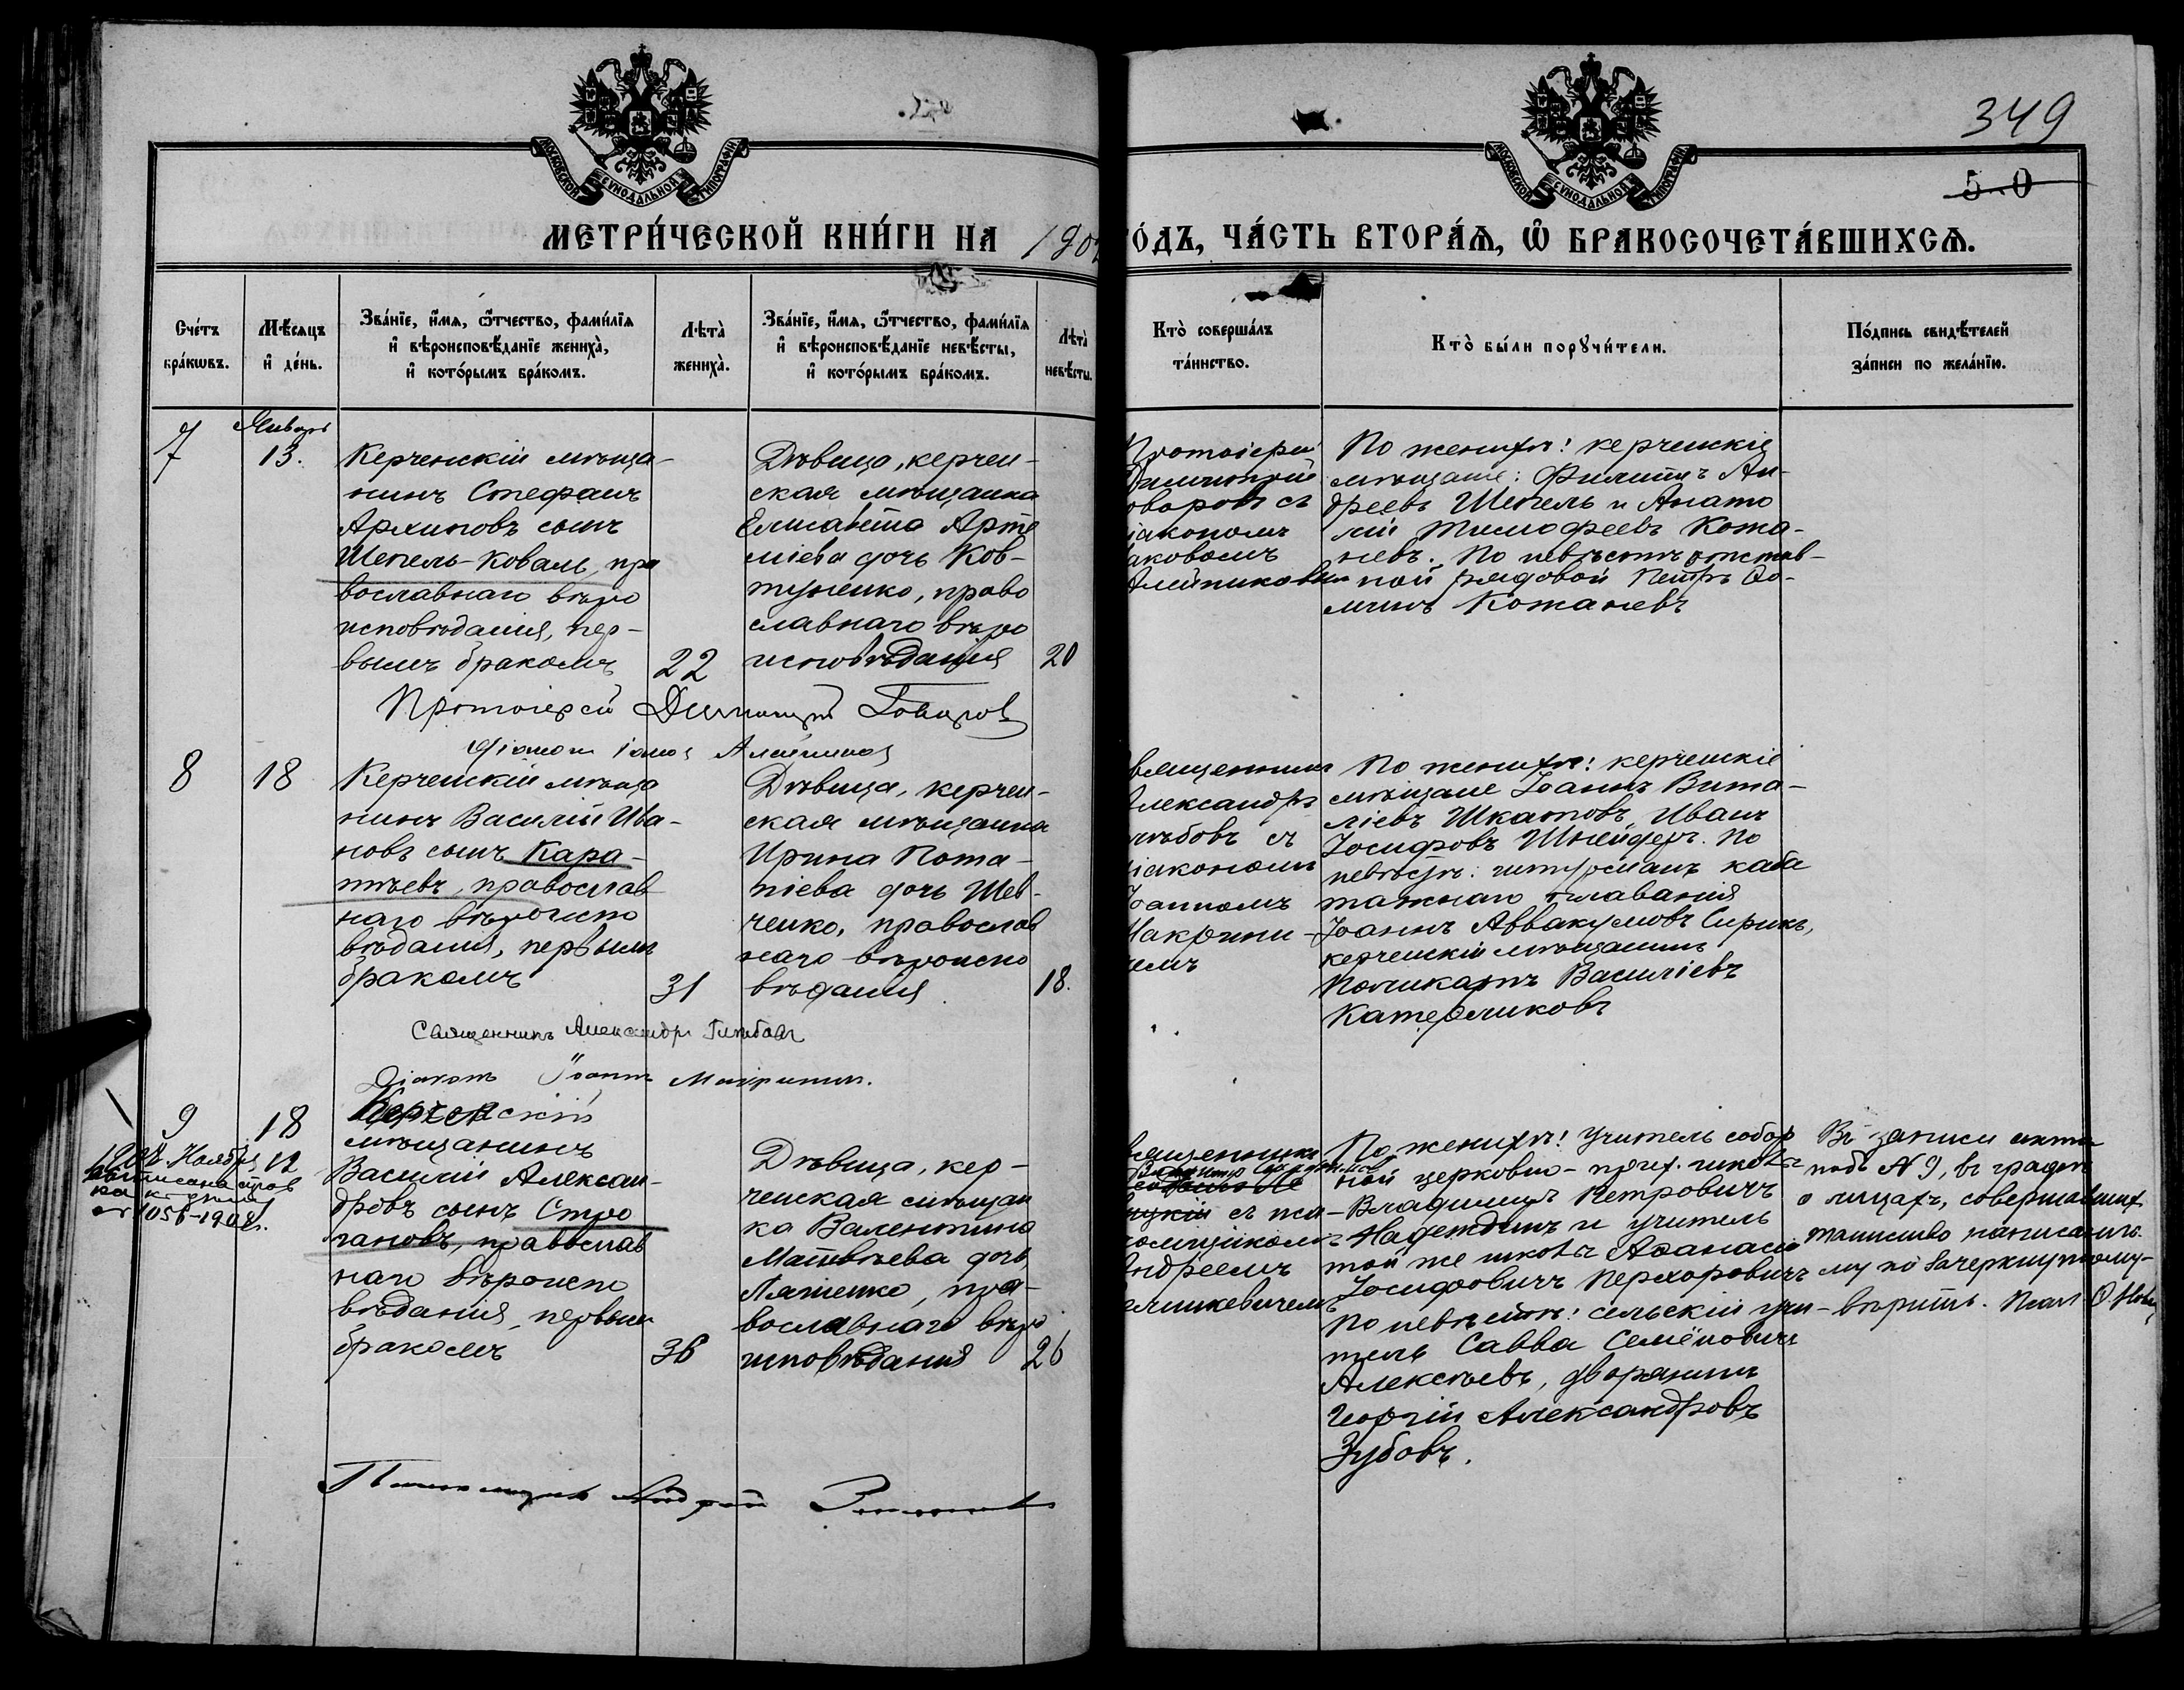 349
50
МОСКОВСКОЙ СѴНОДАЛЬНОЙ ТИПОГРАФІИ
МОСКОВСКОЙ СѴНОДАЛЬНОЙ ТИПОГРАФІИ
МЕТРИ́ЧЕСКОЙ КНИ́ГИ НА 190
ОДЪ, ЧА́СТЬ ВТОРА́Ѧ, Ѽ БРАКОСОЧЕТА́ВШИХСѦ.
Сче́тъ
бра́кѡвъ.
Мѣ́сѧцъ
и҆ де́нь.
Зва́нїе, и҆́мѧ, ѻ҆́тчество, фами́лїѧ
и҆ вѣроисповѣ́данїе жениха̀,
и҆ кото́рымъ бра́комъ.
Лѣта̀
жениха̀.
Зва́нїе, и҆́мѧ, ѻ҆́тчество, фами́лїѧ
и҆ вѣроисповѣ́данїе невѣ́сты,
и҆ кото́рымъ бра́комъ.
Лѣта̀
невѣ́сты.
Кто̀ соверша́лъ
та́инство.
Кто̀ бы́ли порꙋчи́тели.
По́дпись свидѣ́телей
за́писи по жела́нїю.
7
Январь
13.
Керченскій мѣща-
нинъ Стефанъ
Архиповъ сынъ
Шепель-Коваль, пра
вославнаго вѣро
исповѣданія, пер-
вымъ бракомъ
22
Дѣвица, керчен-
ская мѣщанка
Елисавета Арте
міева дочь Ков-
туненко, право
славнаго вѣро
исповѣданія
20
Протоіерей
Димитрій
оваровъ съ
іакономъ
аковомъ
Алейниковы
По женихѣ: керченскіе
мѣщане: Филиппъ Ан-
дреевъ Шепель и Анато
лій Тимофеевъ Кожа-
невъ. По невѣстѣ: отстав-
ной рядовой Петръ Ѳо-
минъ Кожаневъ
Протоіерей Димитрій Говоровъ
Діаконъ Іаковъ Алейниковъ
8
18
Керченскій мѣща
нинъ Василій Ива-
новъ сынъ Кара-
тѣевъ, православ
наго вѣроиспо
вѣданія, первымъ
бракомъ
31
Дѣвица, керчен-
ская мѣщанка
Ирина Пота-
піева дочь Шев-
ченко, православ
наго вѣроиспо
вѣданія
18.
вященникъ
Александръ
лѣбовъ съ
іакономъ
Іоанномъ
Макрини-
емъ
По женихѣ: керченскіе
мѣщане Іоаннъ Вита-
ліевъ Шкатовъ, Иванъ
Іосифовъ Шнейдеръ. По
невѣстѣ: штурманъ каба
тажнаго плаванія
Іоаннъ Аввакумовъ Сирикъ,
керченскій мѣщанинъ
Поликарпъ Василіевъ
Катерликовъ
Священникъ Александръ Глѣбовъ
Діаконъ Іоаннъ
9
18
1908. Ноября 12
1056-1908г.
Керченскій
мѣщанинъ
Василій Алексан-
дровъ сынъ Стро
гановъ, православ
наго вѣроиспо
вѣданія, первымъ
бракомъ
36
Дѣвица, кер-
ченская мѣщан
ка Валентина
Матвѣева дочь
Ляшенко, пра-
вославнаго вѣро
исповѣданія
26
вященникъ
съ пса-
ломщикомъ
Андреемъ
По женихѣ: учитель собор
ной церковно-прих. школы
Владимиръ Петровичъ
Надеждинъ и учитель
той же школы Аѳанасій
Іосифовичъ Перехоровичъ
По невѣстѣ: сельскій учи-
тель Савва Семёновичъ
Алексѣевъ, дворянинъ
Георгій Александровъ
Зубовъ.
Въ записи акта
подъ № 9, въ графѣ
о лицахъ, совершавшихъ
таинство написанно-
му по зачеркнутому-
вѣрить.
Псаломщикъ Андрей